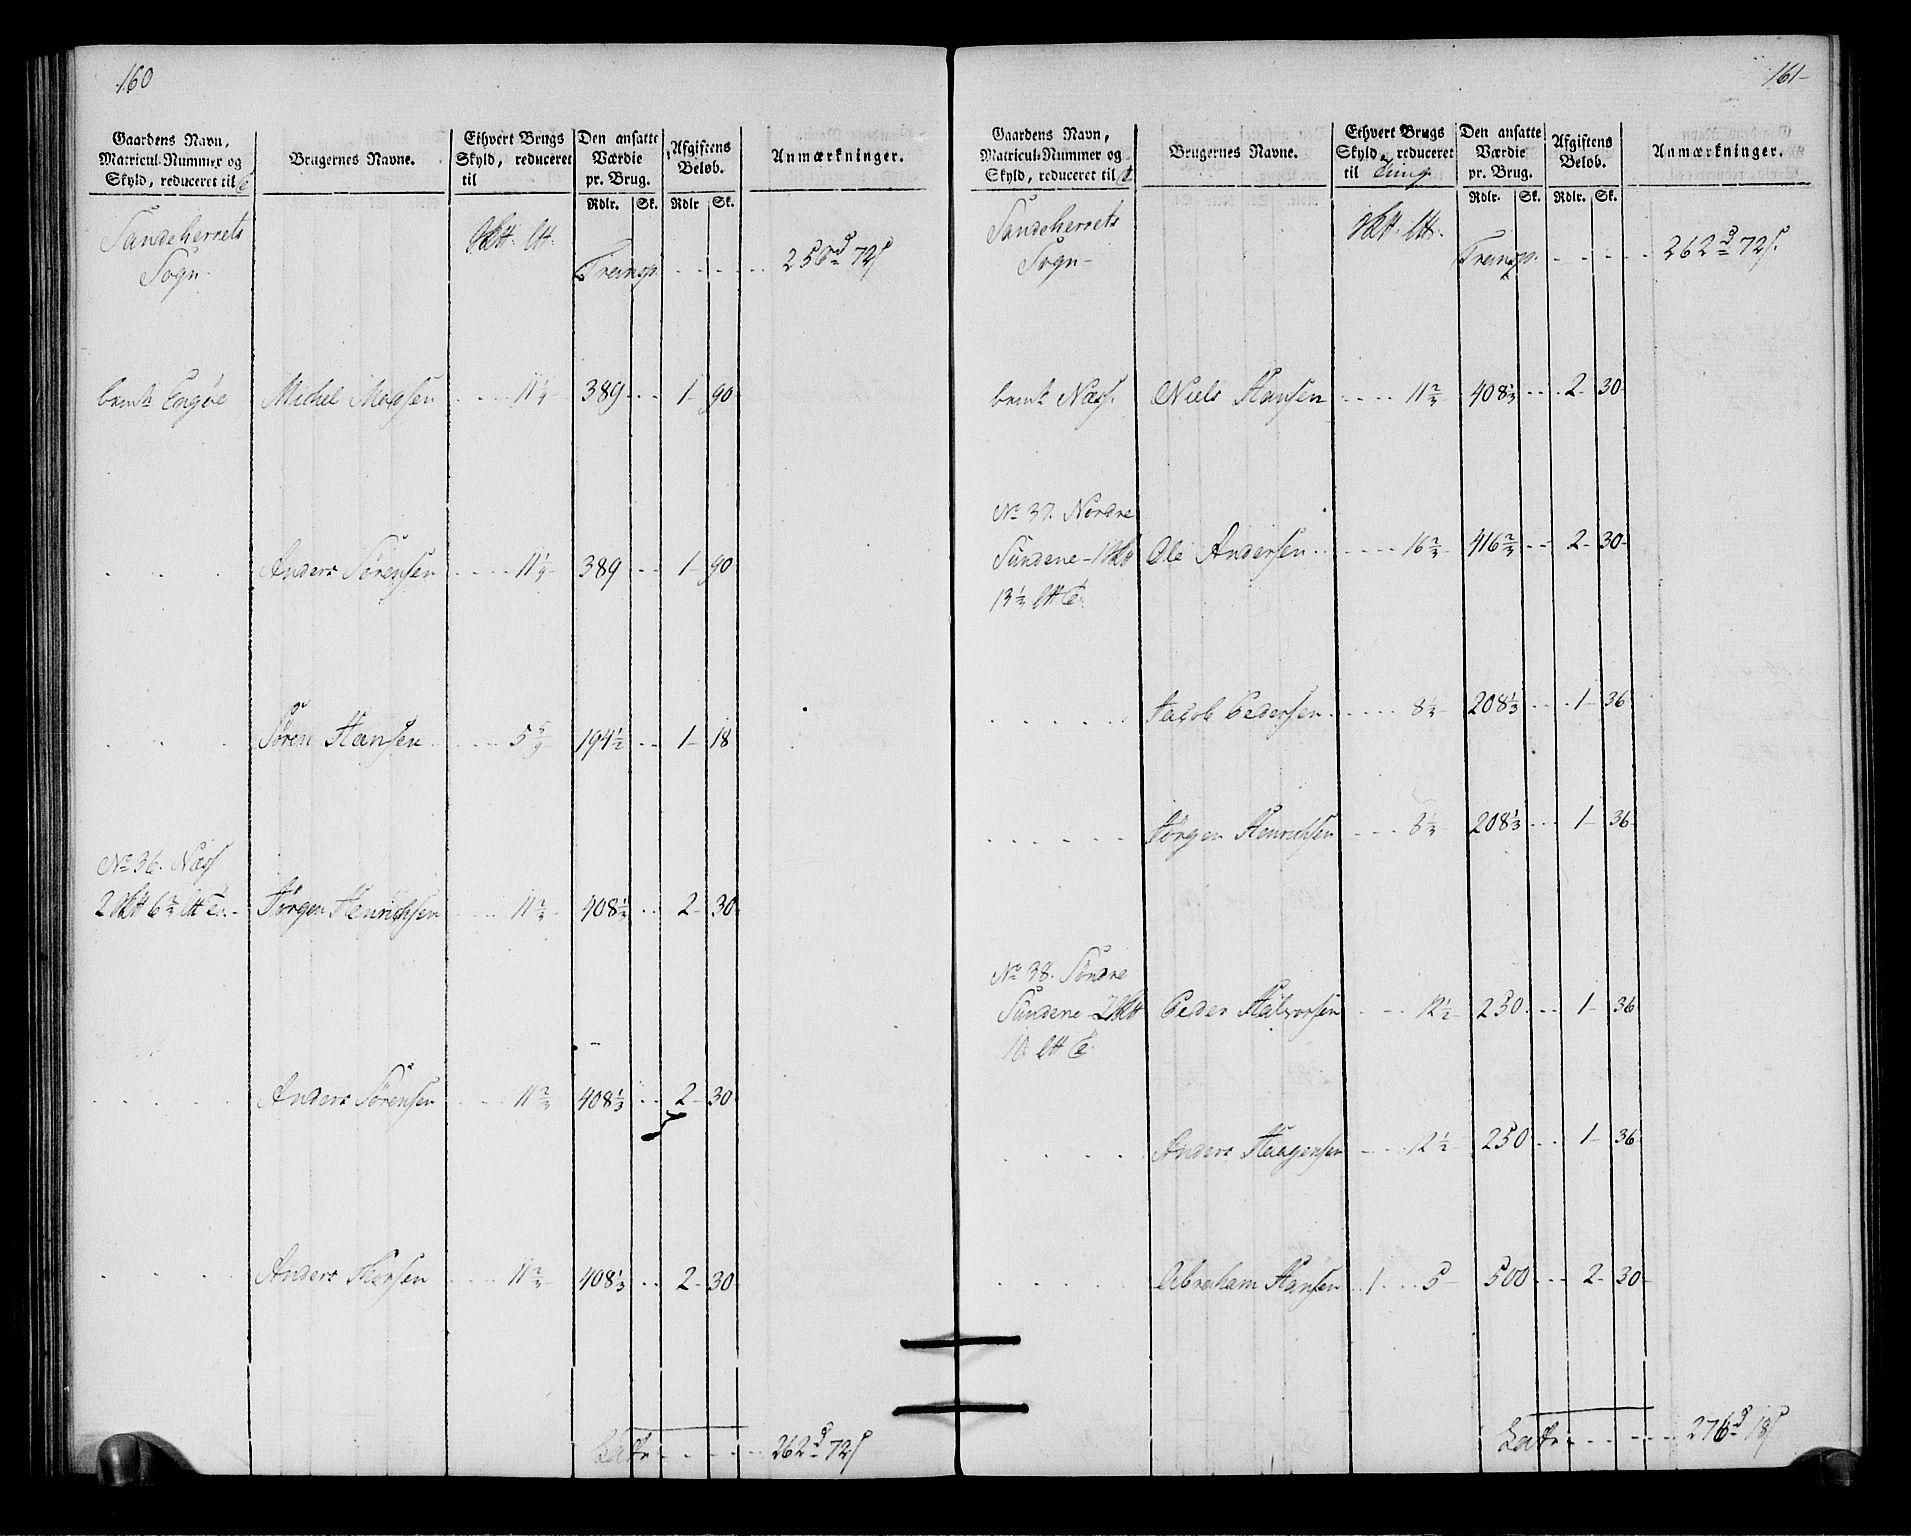 160
Gaardens Navn, Matricul-Nummer og Skyld, reduceret til
Brugernes Navne.
Ethvert Brugs Skyld, reduceret til
Den ansatte Værdie pr. Brug.
Afgiftens Beløb.
Anmærkninger.
Rdlr. Sk. Rdlr Sk.
Sandeherrets Sogn
Transp. 256 72
Engøe Michel 11 1/9 389 1 90
Anders Sørensen 11 1/9 389 1 90
Søren Hansen 5 5/9 194 1/2 1 18
No 36. Næss
2 6 2/3 Jørgen Henrichsen 11 2/3 408 1/3 2 30
Anders Sørensen 11 2/3 408 1/3 2 30
Anders 11 2/3 408 1/3 2 30
Latr 262 72
161
Gaardens Navn, Matricul-Nummer og Skyld, reduceret til
Brugernes Navne.
Ethvert Brugs Skyld, reduceret til Tung
Den ansatte Værdie pr. Brug.
Afgiftens Beløb.
Anmærkninger.
Rdlr. Sk. Rdlr. Sk.
Sandeherrets Sogn
Transp. 262 72
Næss. Niels Hansen 11 2/3 408 1/3 2 30
No 37. Nordre
Sundene 1 Ole Andersen 16 2/3 416 2/3 2 30
13 1/3
Jacob Pedersen 8 1/3 208 1/3 1 36
Jørgen Henrichsen 8 1/3 208 1/3 1 36
No 38. Søndre
Sundene 2 Peder Halvorsen 12 1/2 250 1 36
10
Anders Haagensen 12 1/2 250 1 36
Abraham Hansen 1 5 500 2 30
Latr 276 18